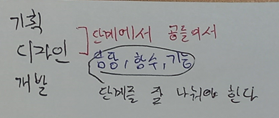 기획
디자인
개발
단계에서 공들여서
컴탐, 함수, 기능
단계를 잘 나눠야 한다